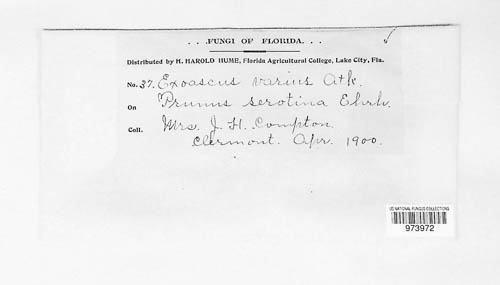 . . .FUNGI OF FLORIDA. . .
Distributed by H. HAROLD HUME, Florida Agricultural College, Lake City, Fla.
No. 37. Exoascus varius Atk.
On Prunus serotina Ehrh.
Coll. Mrs. J. H. Compton.
Clermont. Apr. 1900.
US NATIONAL FUNGUS COLLECTIONS
973972